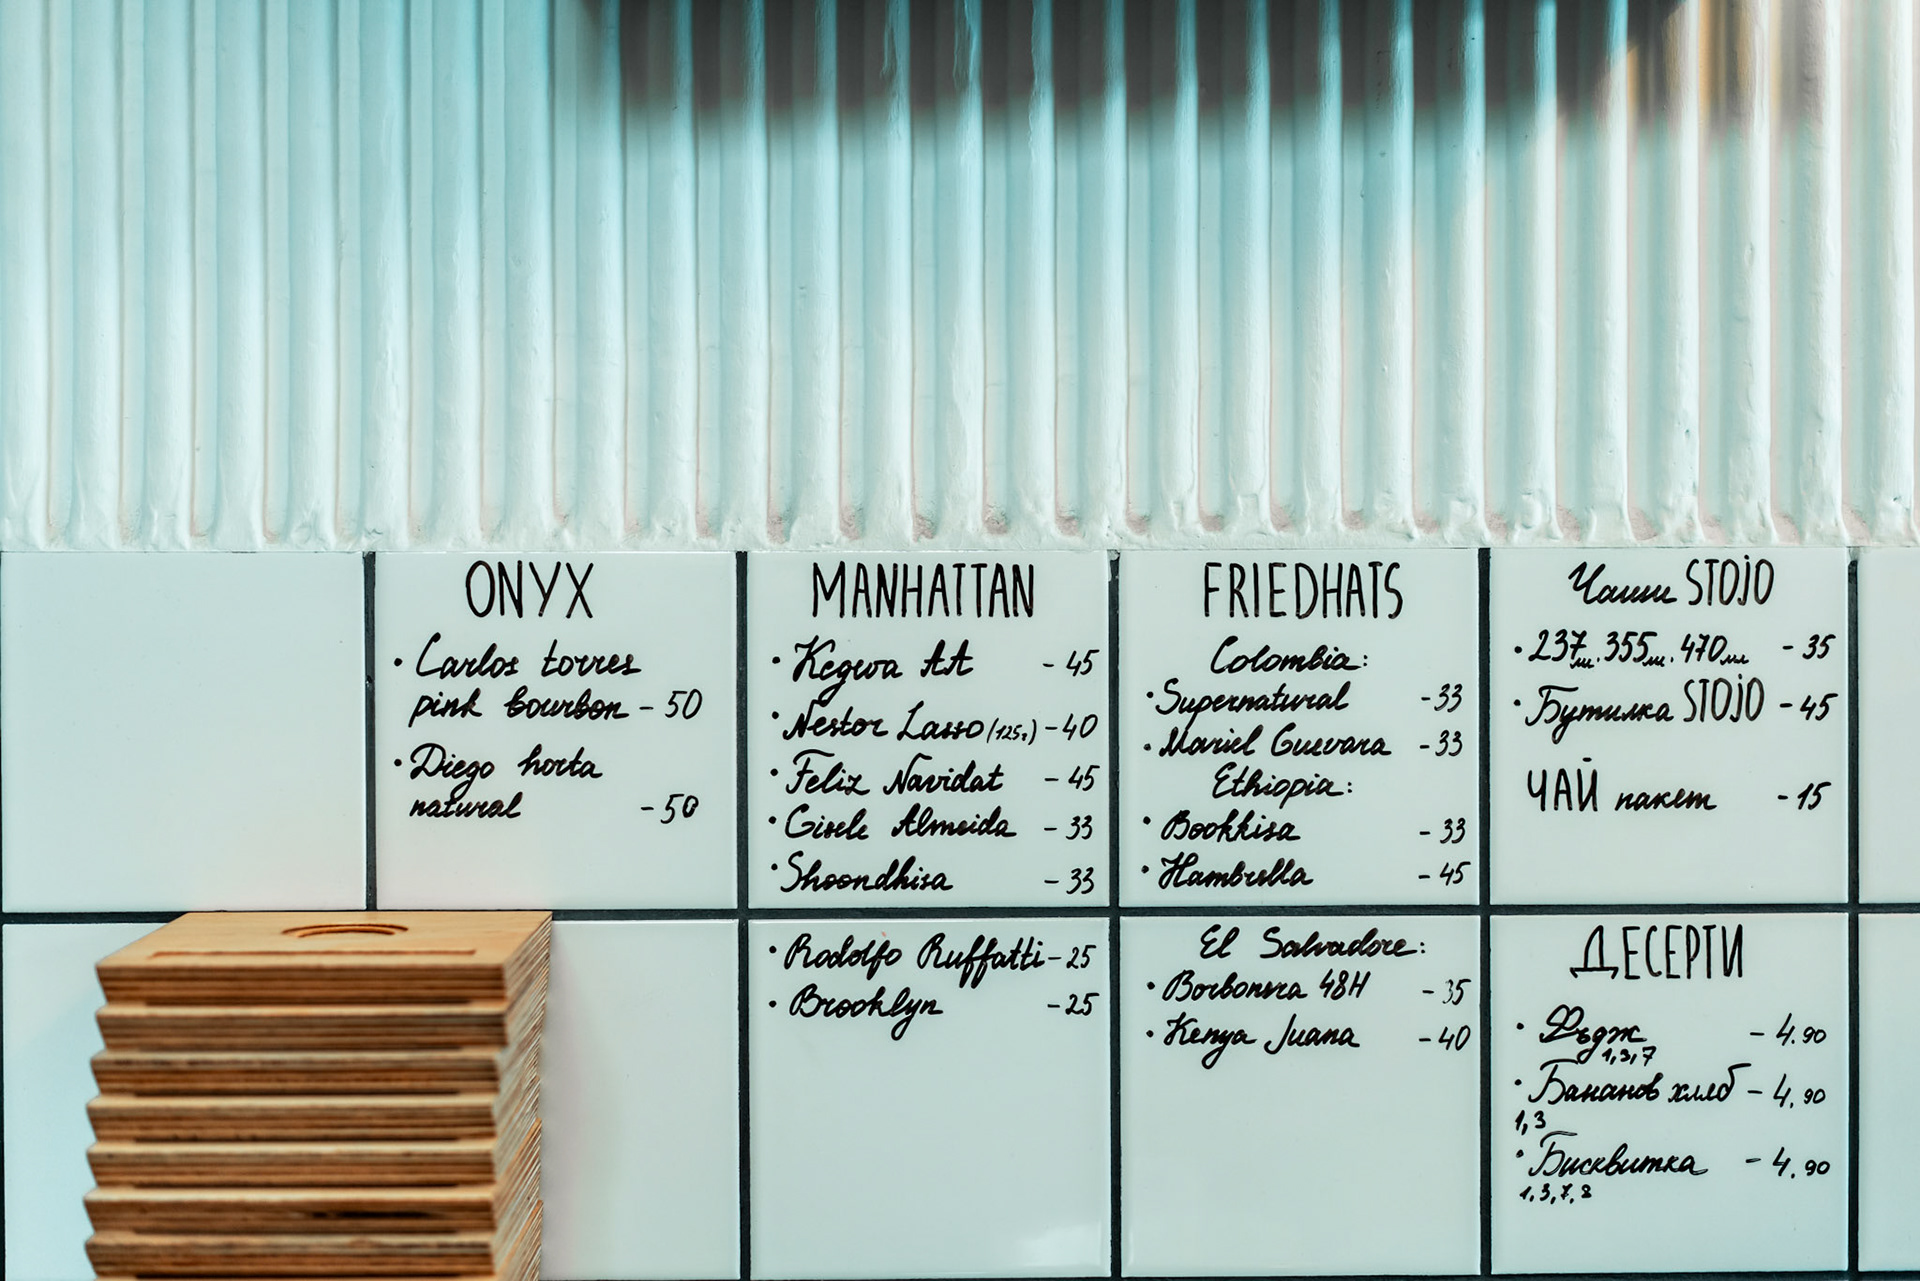 ONYX
• Carlos torres
pink bourbon - 50
• Diego horta
natural - 50
MANHATTAN
• Kegwa AA - 45
• Nestor Lasso (125г) - 40
• Feliz Navidat - 45
• Gisele Almeida - 33
• Shoondhisa - 33
• Rodolfo Ruffatti - 25
• Brooklyn - 25
FRIEDHATS
Colombia:
• Supernatural - 33
• Mariel Guevara - 33
Ethiopia:
• Bookkisa - 33
• Hambella - 45
El Salvadore:
• Borbonera 48H - 35
• Kenya Juana - 40
Чаши STOJO
• 237мл. 355мл. 470мл - 35
• Бутилка STOJO - 45
ЧАЙ пакет - 15
ДЕСЕРТИ
• Фъдж - 4.90
1,3,7
• Бананов хляб - 4.90
1,3
• Бисквитка - 4.90
1,3,7,8